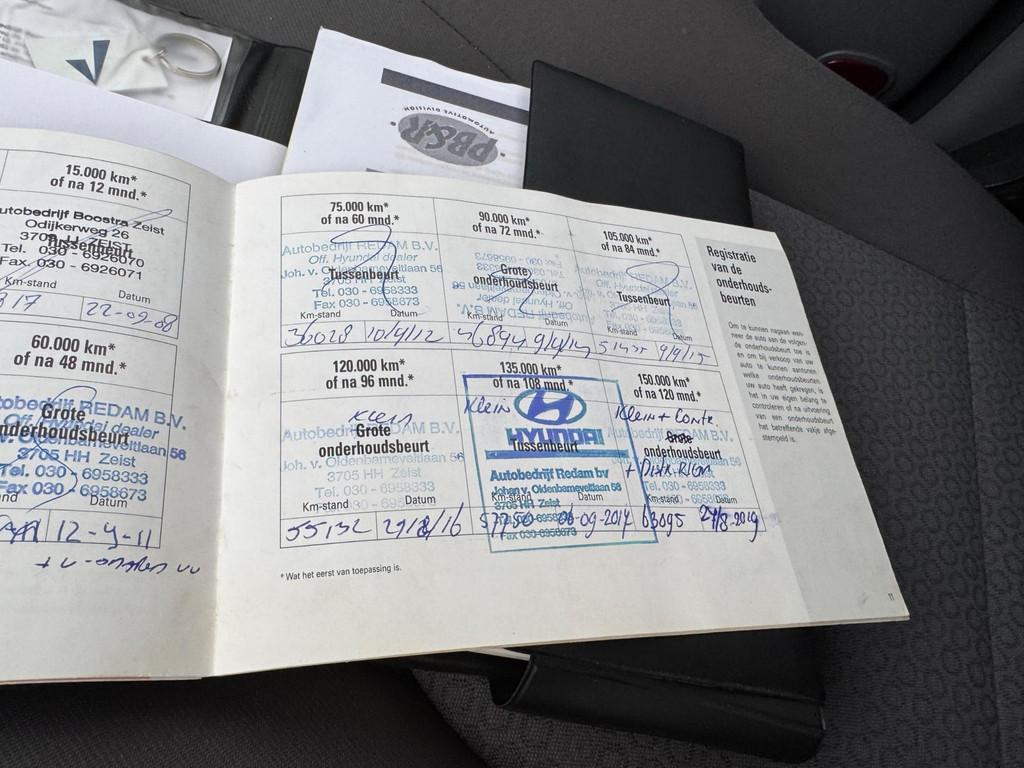 PB&R
AUTOMOTIVE DIVISION
15.000 km*
of na 12 mnd.*
utobedrijf Boostra Zeist
Odijkerweg 26
Tussenbeurt
Tel. 030 - 6926070
Fax. 030 - 6926071
Km-stand Datum
817 22-09-08
60.000 km*
of na 48 mnd.*
tobedrijf REDAM B.V.
Off. Hyundai dealer
Grote
onderhoudsbeurt
3705 HH Zeist
Tel. 030 - 6958333
Fax 030 - 6958673
Datum
12-4-11
75.000 km*
of na 60 mnd.*
Autobedrijf REDAM B.V.
Off. Hyundai dealer
Joh. v. Oldenbarneveltlaan 56
Tussenbeurt
Tel. 030 - 6958333
Fax 030 - 6958673
Km-stand Datum
36028 10/4/12
90.000 km*
of na 72 mnd.*
Grote
onderhoudsbeurt
Km-stand Datum
46894 9/4/14
105.000 km*
of na 84 mnd.*
Autobedrijf REDAM B.V.
Tussenbeurt
Km-stand Datum
9/9/15
120.000 km*
of na 96 mnd.*
Klein
Autobedrijf REDAM B.V.
Grote
onderhoudsbeurt
Joh. v. Oldenbarneveltlaan 56
3705 HH Zeist
Tel. 030 - 6958333
Fax 030 - 6958673
Km-stand Datum
55132
135.000 km*
of na 108 mnd.*
Klein
HYUNDAI
Tussenbeurt
Autobedrijf Redam bv
Johan v. Oldenbarneveltlaan 56
3705 HH Zeist
Km-stand Datum
Fax 030-6958673
150.000 km*
of na 120 mnd.*
Klein +
Grote
onderhoudsbeurt
Km-stand Datum
63095
* Wat het eerst van toepassing is.
Registratie
van de
onderhouds-
beurten
Om te kunnen nagaan wan-
neer de auto aan de volgen-
de onderhoudsbeurt toe is
en om bij verkoop van uw
auto te kunnen aantonen
welke onderhoudsbeurten
uw auto heeft gekregen, is
het in uw eigen belang te
controleren of na uitvoering
van een onderhoudsbeurt
het betreffende vakje afge-
stempeld is.
11